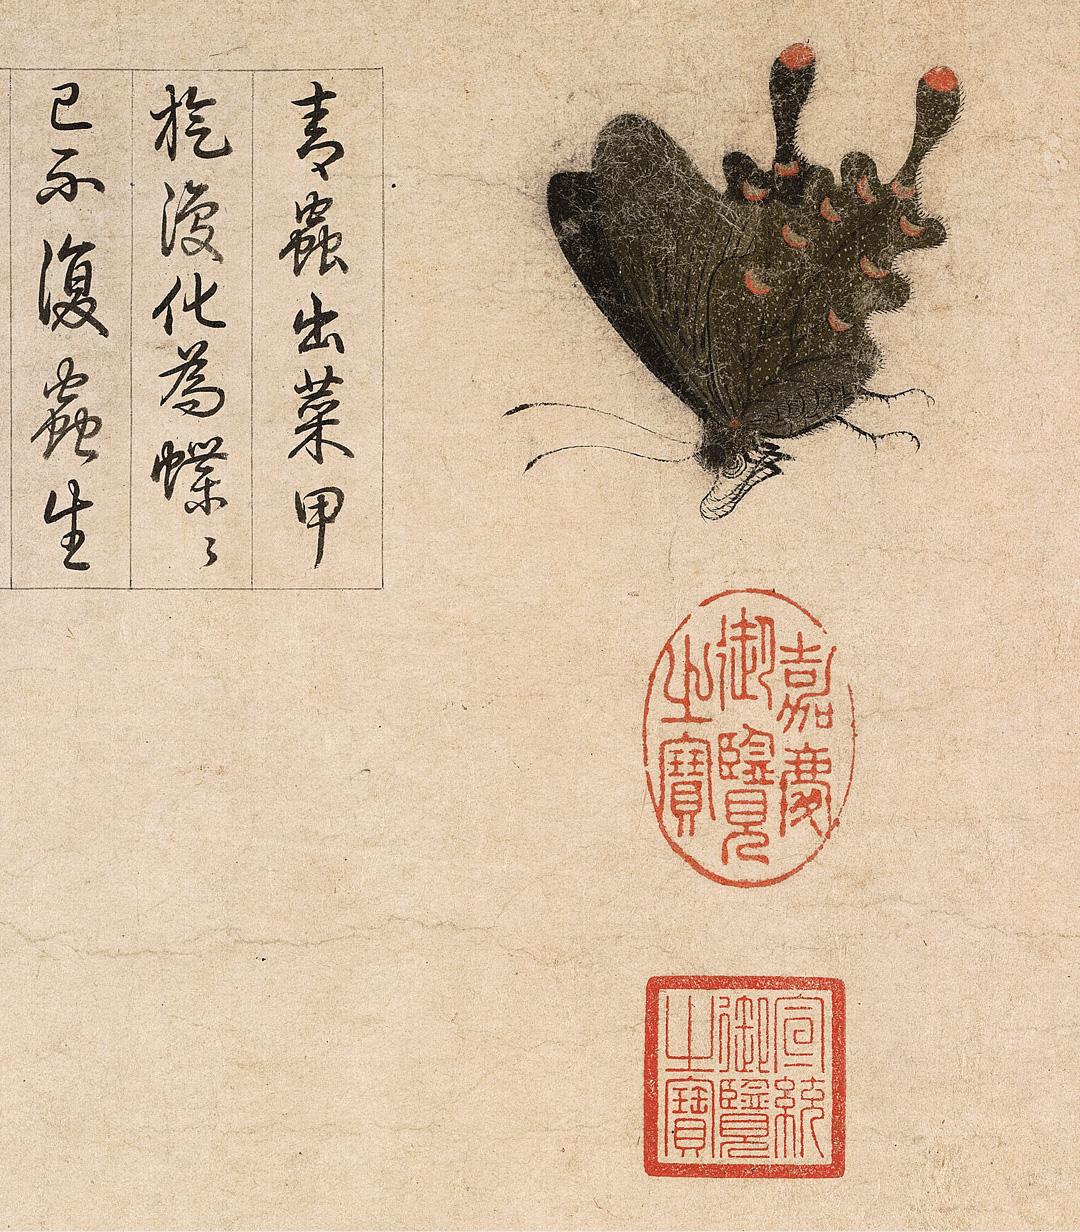 青蟲出菜甲
旋化為蝶々
已不復蟲生
嘉慶御覽之寶
宣統御覽之寶